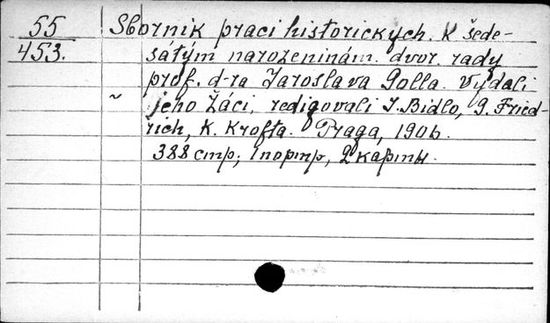 55 Sbornik praci historickych. K šede-
453. satým narozeninám dvor. rady
prof. d-ra Jaroslava Golla. Vydali
~ jeho žáci, redigovali J. Bidlo, G. Fried-
rich, K. Krofta. Praga, 1906.
388 стр; 1 портр, 2 карты.